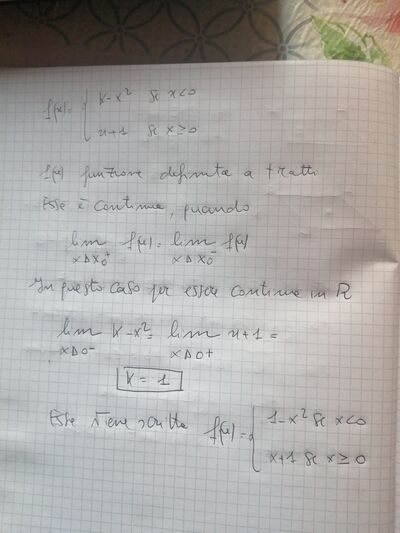 f(x)= { k-x² se x<0
x+1 se x≥0
f(x) funzione definita a tratti
Essa è continua, quando
lim x→x₀⁺ f(x) = lim x→x₀⁻ f(x)
In questo caso per essere continua in R
lim x→0⁻ k-x² = lim x→0⁺ x+1 =
K = 1
Essa viene scritta f(x)= { 1-x² se x<0
x+1 se x≥0